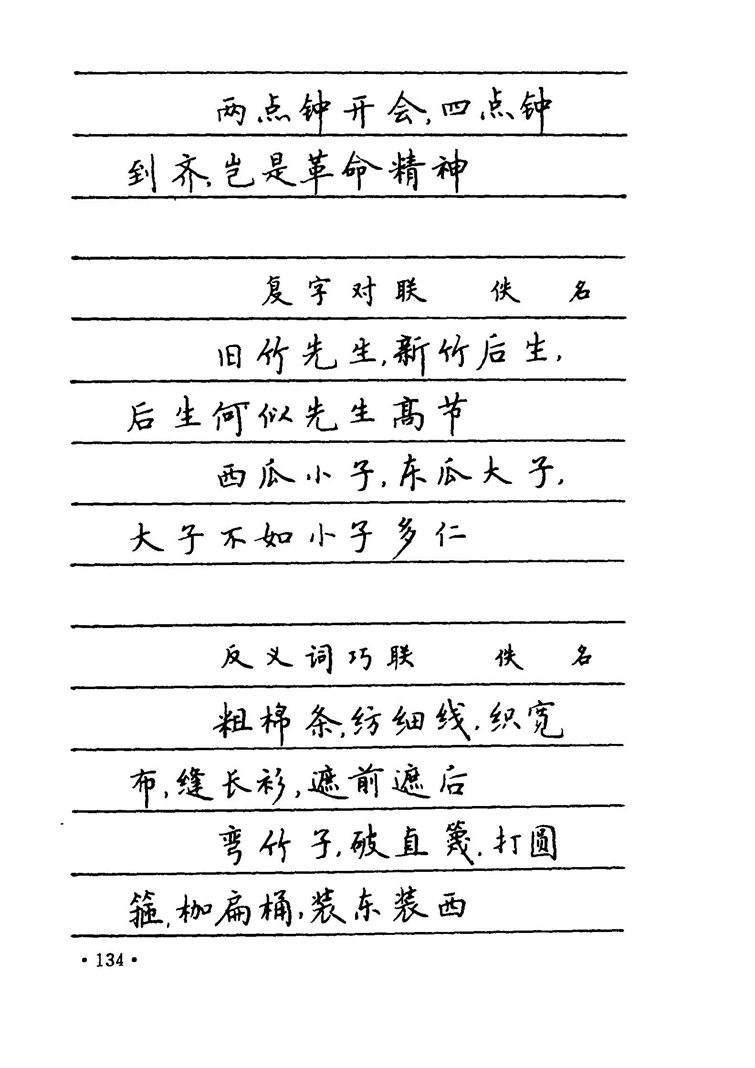 两点钟开会,四点钟
到齐,岂是革命精神
复字对联 佚名
旧竹先生,新竹后生,
后生何似先生高节
西瓜小子,东瓜大子,
大子不如小子多仁
反义词巧联 佚名
粗棉条,纺细线,织宽
布,缝长衫,遮前遮后
弯竹子,破直篾,打圆
箍,枷扁桶,装东装西
·134·